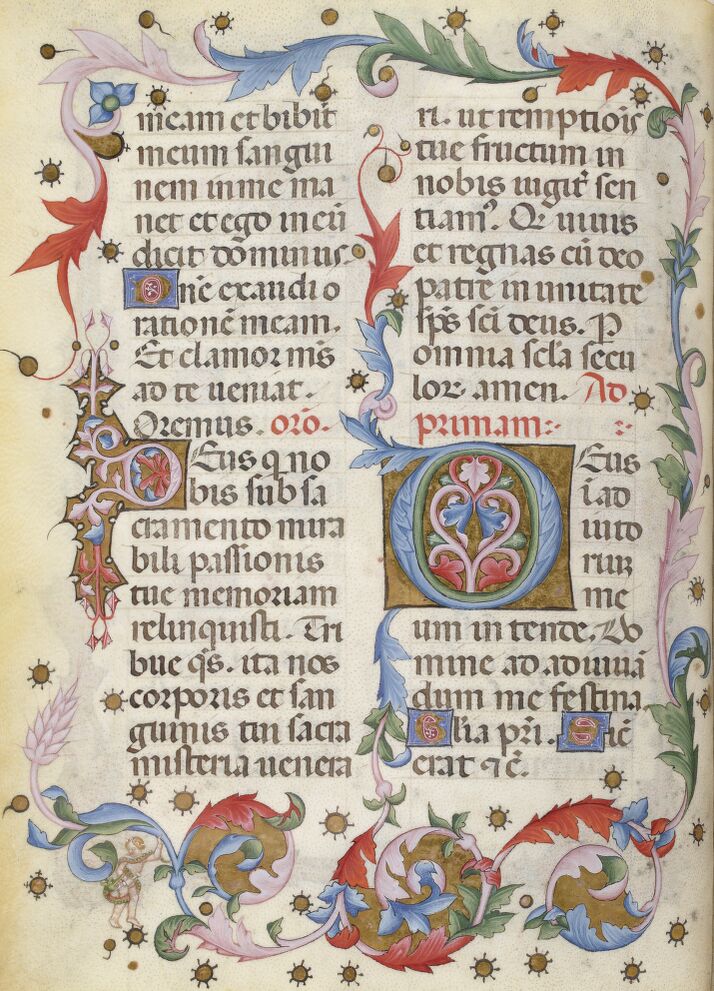 meam et bibit
meum sangui
nem in me ma
net et ego in eū
dicit dominus.
Dn̄e exaudi o
rationē meam.
Et clamor m̄s
ad te ueniat.
Oremus. orō.
Deus q no
bis sub sa
cramento mira
bili passionis
tue memoriam
relinquisti. Tri
bue q̄s. ita nos
corporis et san
guinis tui sacra
misteria uenera
ri. ut remptiōis
tue fructum in
nobis iugit̄ sen
tiam⁹. Q uiuis
et regnas cū deo
patre in unitate
sp̄s sc̄i deus. P
omnia sc̄la secu
loꝝ amen. Ad
primam:-
Deus
ī ad
iuto
rium
me
um in tende. Do
mine ad adiuuā
dum me festina
Glia pr̄i. Sic̄
erat ⁊ c̄.